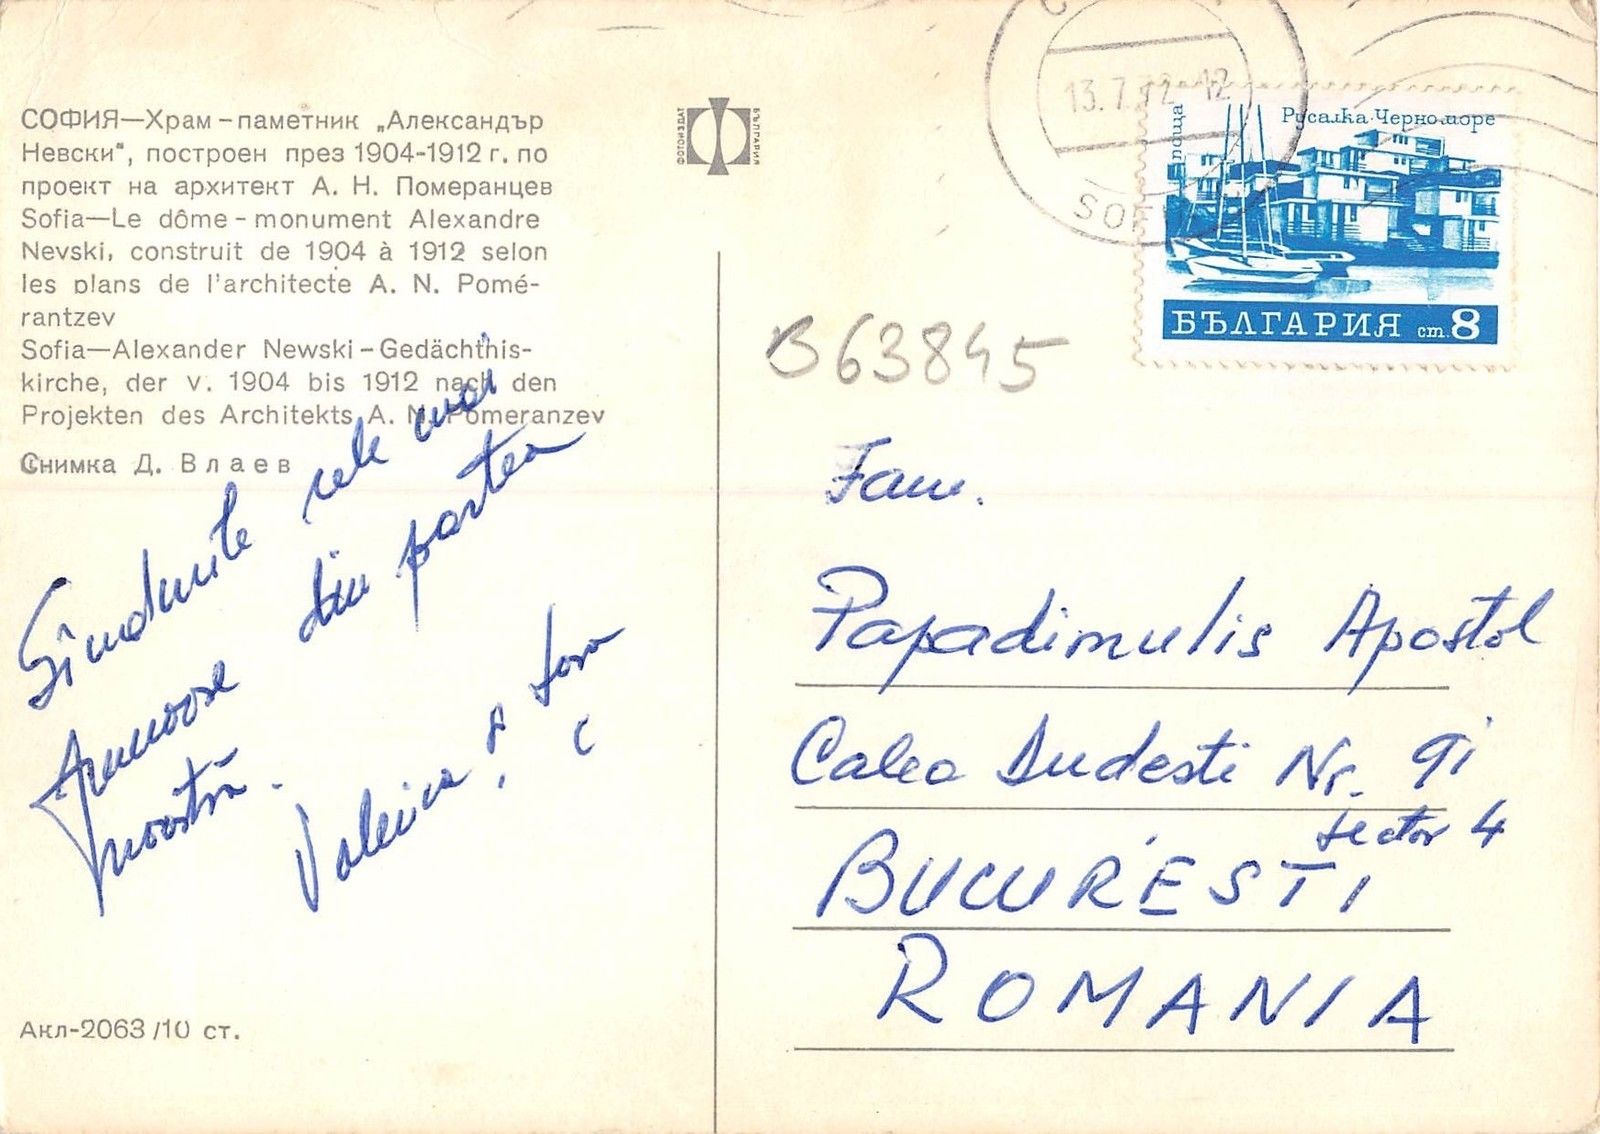 СОФИЯ—Храм-паметник „Александър
Невски", построен през 1904-1912 г. по
проект на архитект А. Н. Померанцев
Sofia—Le dôme-monument Alexandre
Nevski, construit de 1904 à 1912 selon
les plans de l'architecte A. N. Pomé-
rantzev
Sofia—Alexander Newski-Gedächtnis-
kirche, der v. 1904 bis 1912 nach den
Projekten des Architekts A. N. Pomeranzev
Снимка Д. Влаев
Gîndurile cele mai
frumoase din partea
noastră.
Акл-2063/10 ст.
ФОТОИЗДАТ
БЪЛГАРИЯ
13.7.72-12
SOFIA
поща
Русалка·Черноморе
БЪЛГАРИЯ ст.8
B63845
Fam.
Papadimulis Apostol
Calea Dudesti Nr. 91
sector 4
BUCUREȘTI
ROMANIA